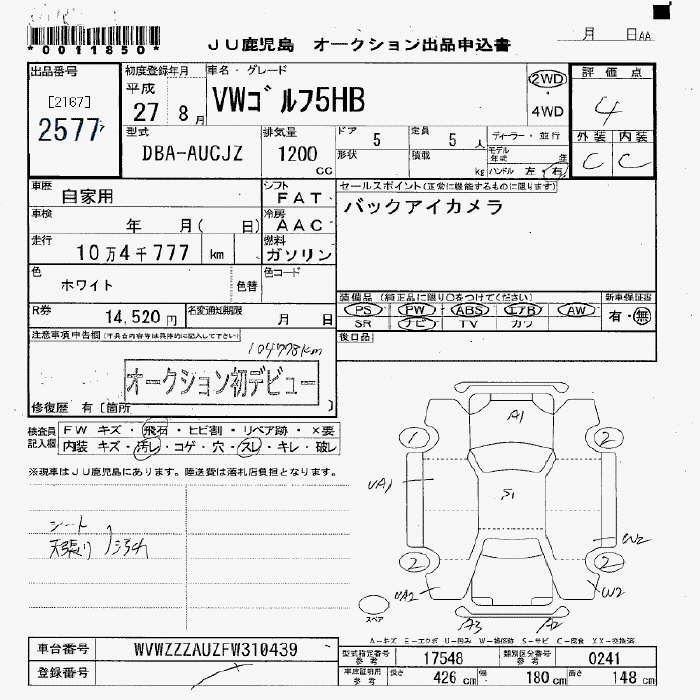 *0011850*
JU鹿児島 オークション出品申込書
月 日AA
出品番号
[2167]
2577
初度登録年月
平成
27 8月
車名・グレード
VWゴルフ5HB
2WD
・
4WD
評価点
4
外装 内装
C C
型式
DBA-AUCJZ
排気量
1200
CC
ドア
5
定員
5人
形状
積載
kg
ディーラー・並行
モデル年式 年
ハンドル 左・右
車歴
自家用
シフト
FAT
セールスポイント(正常に機能するものに限ります)
バックアイカメラ
車検
年 月( 日)
冷房
AAC
走行
10万4千777 km
燃料
ガソリン
色
ホワイト
色替
色コード
装備品(純正品に限り○をつけてください)
PS PW ABS エアB AW
SR ナビ TV カワ
新車保証書
有・無
R券
14,520円
名変通知期限
月 日
後日品
注意事項申告欄(不具合内容等は具体的に記入して下さい)
104778km
オークション初デビュー
修復歴 有[箇所 ]
検査員記入欄
FW キズ・飛石・ヒビ割・リペア跡・X要
内装 キズ・汚レ・コゲ・穴・スレ・キレ・破レ
※現車はJU鹿児島にあります。陸送費は落札店負担となります。
シート
天張り 汚れ
A1
1
2
UA1
S1
W2
2
2
UA2
W2
スペア
A3
A2
A-キズ E-エクボ U-凹み W-補修跡 S-サビ C-腐食 XX-交換済
車台番号
WVWZZZAUZFW310439
登録番号
型式指定番号
参考
17548
類別区分番号
参考
0241
車庫証明用
参考
長さ
426 cm
幅
180 cm
高さ
148 cm